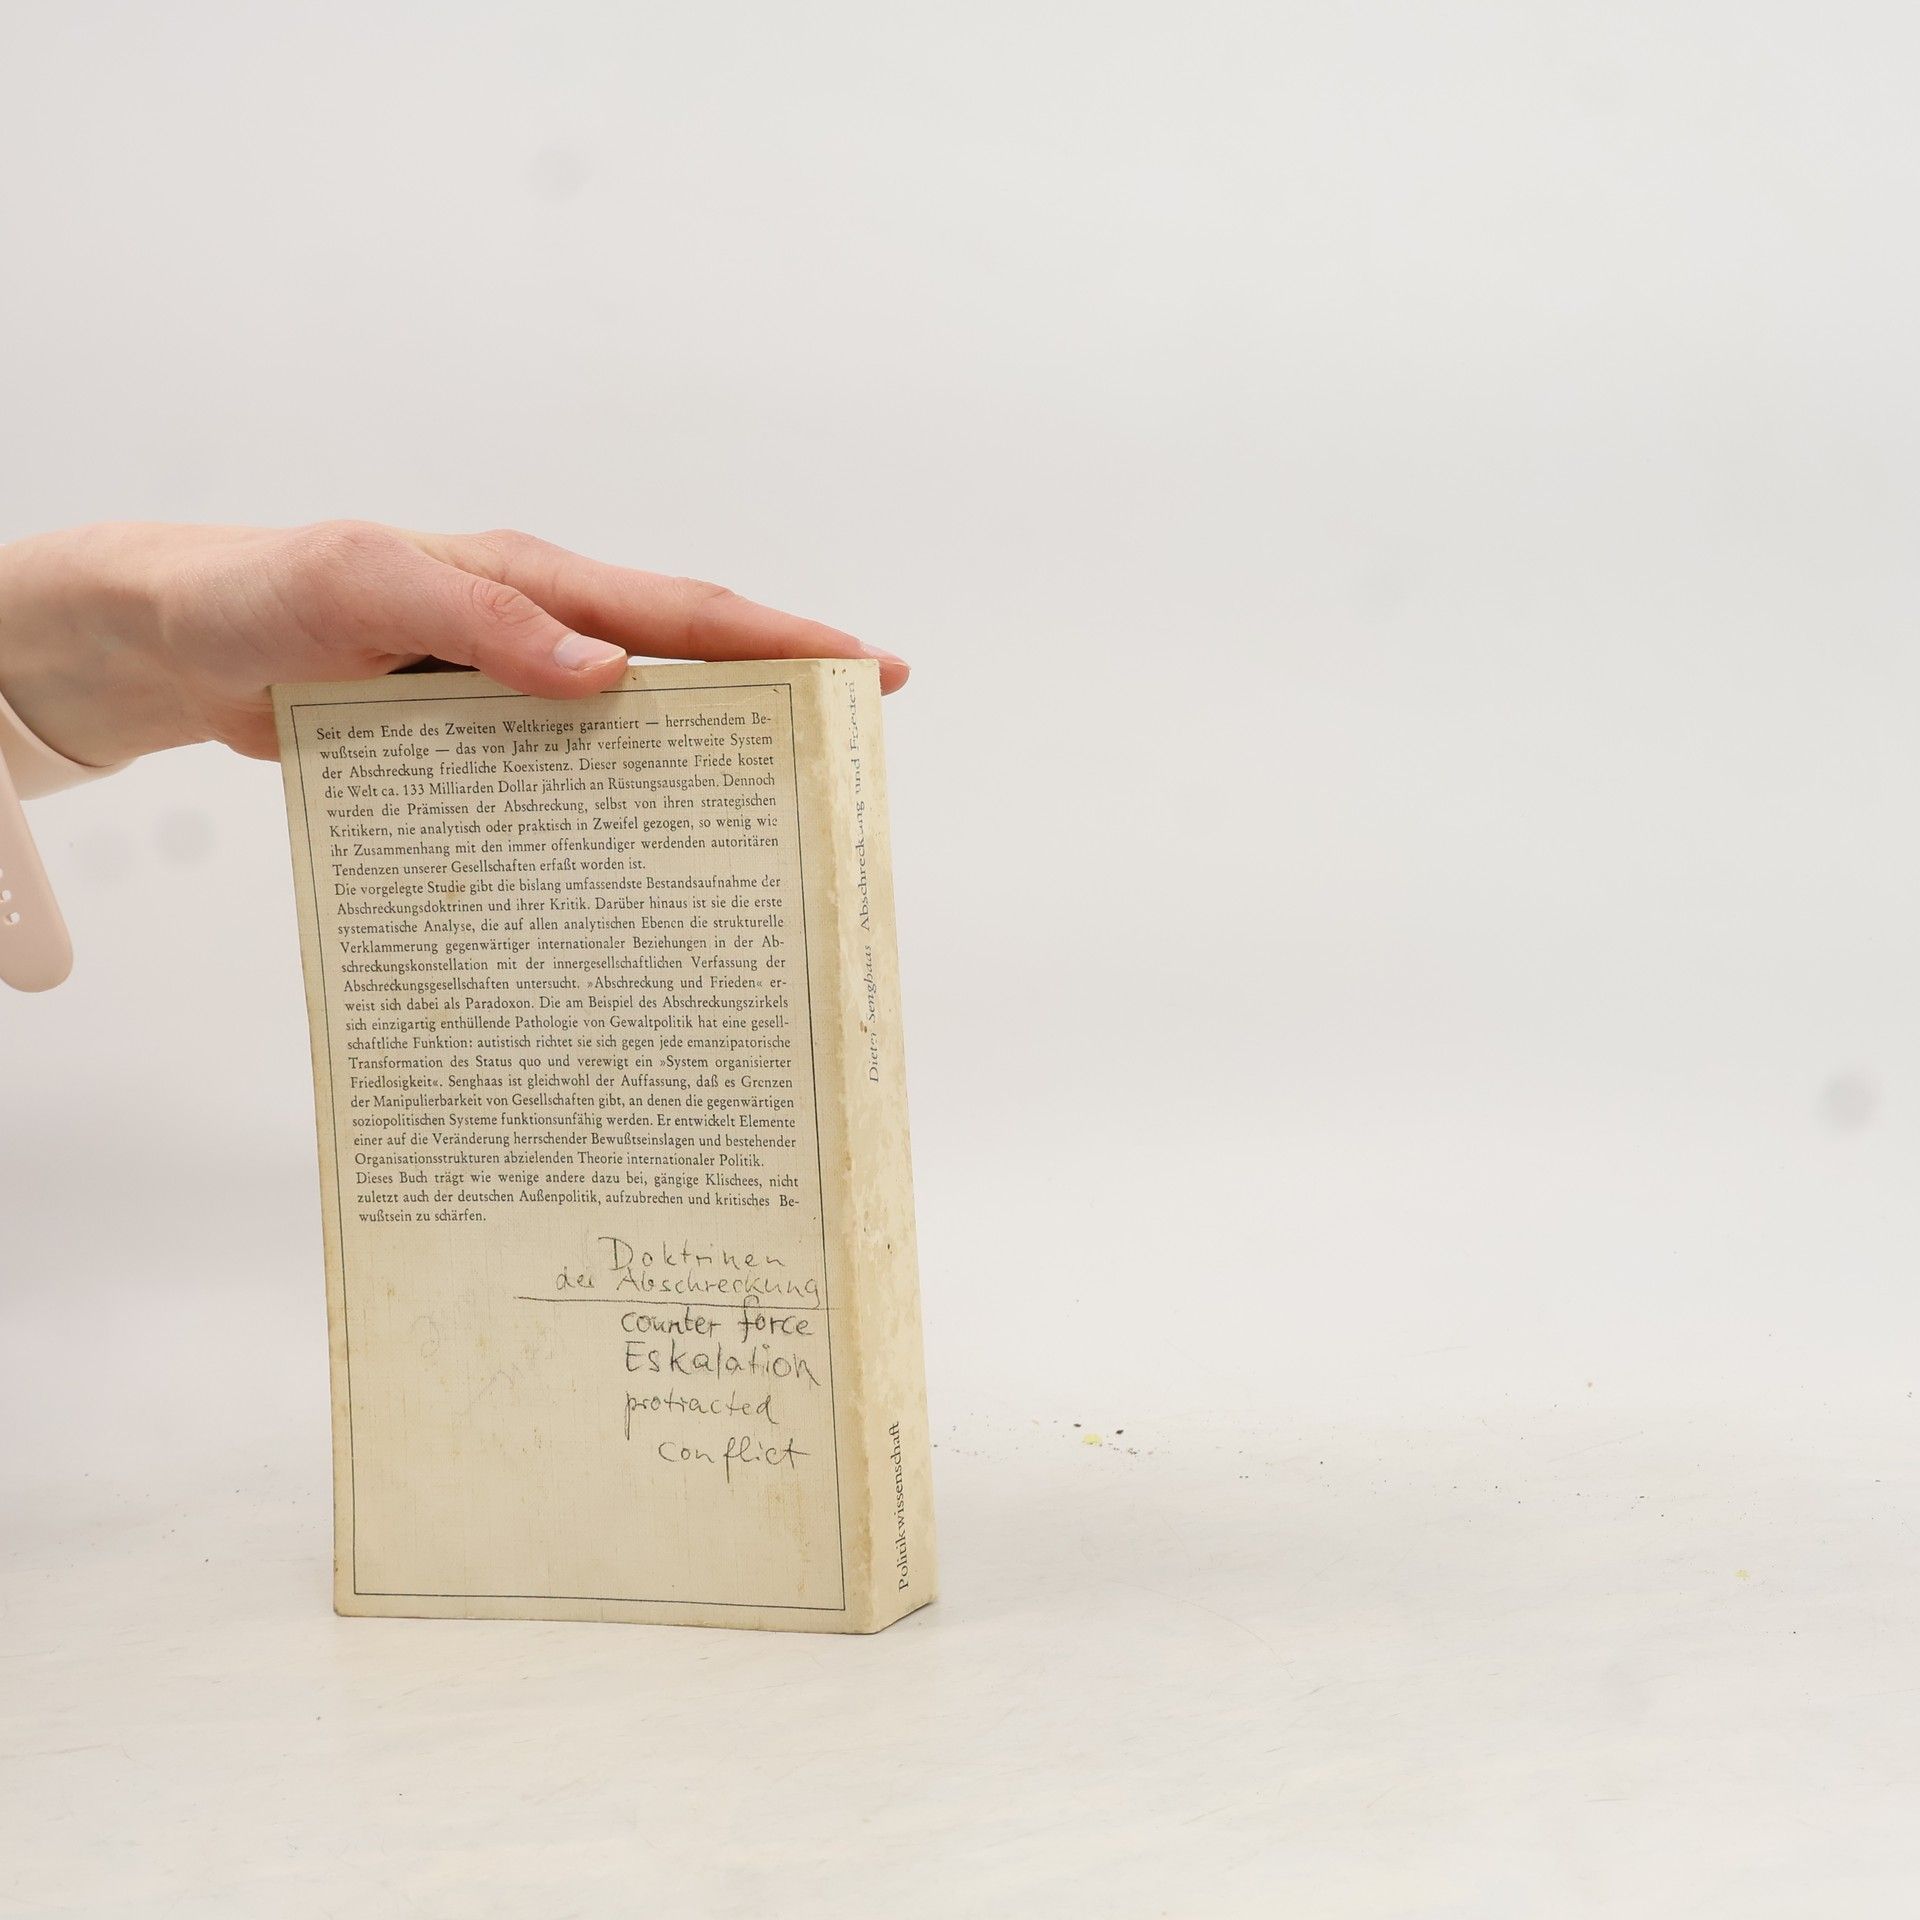 Seit dem Ende des Zweiten Weltkrieges garantiert — herrschendem Be-
wußtsein zufolge — das von Jahr zu Jahr verfeinerte weltweite System
der Abschreckung friedliche Koexistenz. Dieser sogenannte Friede kostet
die Welt ca. 133 Milliarden Dollar jährlich an Rüstungsausgaben. Dennoch
wurden die Prämissen der Abschreckung, selbst von ihren strategischen
Kritikern, nie analytisch oder praktisch in Zweifel gezogen, so wenig wie
ihr Zusammenhang mit den immer offenkundiger werdenden autoritären
Tendenzen unserer Gesellschaften erfaßt worden ist.
Die vorgelegte Studie gibt die bislang umfassendste Bestandsaufnahme der
Abschreckungsdoktrinen und ihrer Kritik. Darüber hinaus ist sie die erste
systematische Analyse, die auf allen analytischen Ebenen die strukturelle
Verklammerung gegenwärtiger internationaler Beziehungen in der Ab-
schreckungskonstellation mit der innergesellschaftlichen Verfassung der
Abschreckungsgesellschaften untersucht. »Abschreckung und Frieden« er-
weist sich dabei als Paradoxon. Die am Beispiel des Abschreckungszirkels
sich einzigartig enthüllende Pathologie von Gewaltpolitik hat eine gesell-
schaftliche Funktion: autistisch richtet sie sich gegen jede emanzipatorische
Transformation des Status quo und verewigt ein »System organisierter
Friedlosigkeit«. Senghaas ist gleichwohl der Auffassung, daß es Grenzen
der Manipulierbarkeit von Gesellschaften gibt, an denen die gegenwärtigen
soziopolitischen Systeme funktionsunfähig werden. Er entwickelt Elemente
einer auf die Veränderung herrschender Bewußtseinslagen und bestehender
Organisationsstrukturen abzielenden Theorie internationaler Politik.
Dieses Buch trägt wie wenige andere dazu bei, gängige Klischees, nicht
zuletzt auch der deutschen Außenpolitik, aufzubrechen und kritisches Be-
wußtsein zu schärfen.
Doktrinen
der Abschreckung
counter force
Eskalation
protracted
conflict
Dieter Senghaas Abschreckung und Frieden
Politikwissenschaft